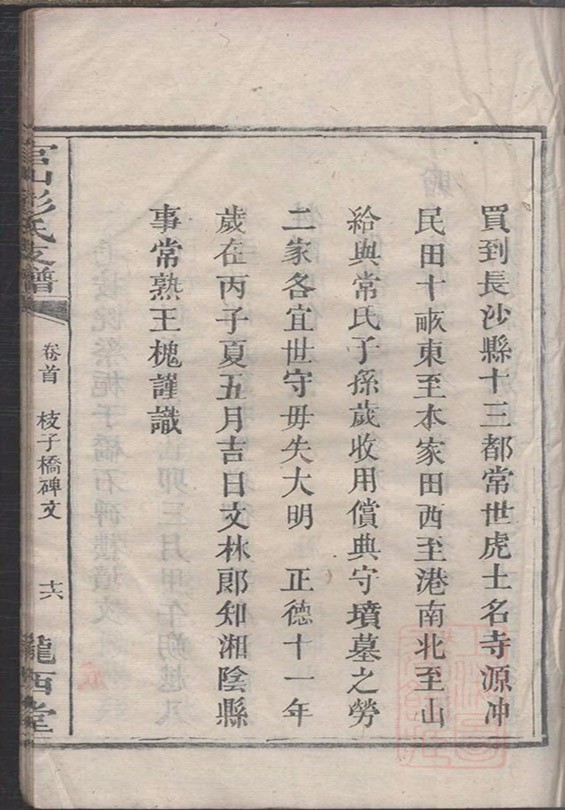 買到長沙縣十三都常世虎土名寺源冲
民田十畝東至本家田西至港南北至山
給與常氏子孫歲收用償典守墳墓之勞
二家各宜世守毋失大明　正德十一年
歲在丙子夏五月吉日文林郎知湘陰縣
事常熟王槐謹識
官山彭氏支譜
卷首　枝子橋碑文　十六
隴西堂